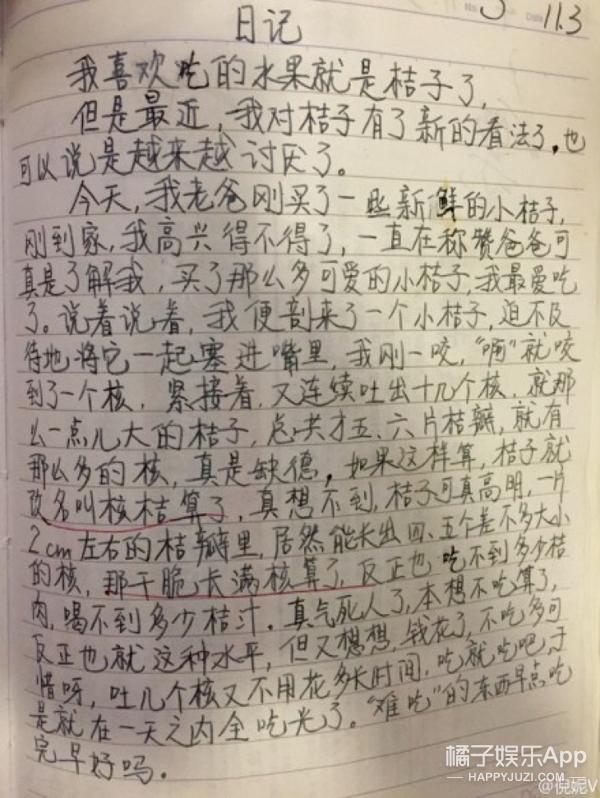 No 3 Date 11.3
日记
我喜欢吃的水果就是桔子了，
但是最近，我对桔子有了新的看法了，也
可以说是越来越讨厌了。
今天，我老爸刚买了一些新鲜的小桔子，
刚到家，我高兴得不得了，一直在称赞爸爸可
真是了解我，买了那么多可爱的小桔子，我最爱吃
了。说着说着，我便剖来了一个小桔子，迫不及
待地将它一起塞进嘴里，我刚一咬，“嘣”就咬
到了一个核，紧接着，又连续吐出十几个核，就那
么一点儿大的桔子，总共才五、六片桔瓣，就有
那么多的核，真是缺德，如果这样算，桔子就
改名叫核桔算了，真想不到，桔子可真高明，一片
2cm左右的桔瓣里，居然能长出四、五个差不多大小
的核，那干脆长满核算了，反正也吃不到多少桔
肉，喝不到多少桔汁。真气死人了，本想不吃算了，
反正也就这种水平，但又想想，钱花了，不吃多可
惜呀，吐几个核又不用花多长时间，吃就吃吧，于
是就在一天之内全吃光了。“难吃”的东西早点吃
完早好吗。
橘子娱乐App
HAPPYJUZI.COM
@倪妮V